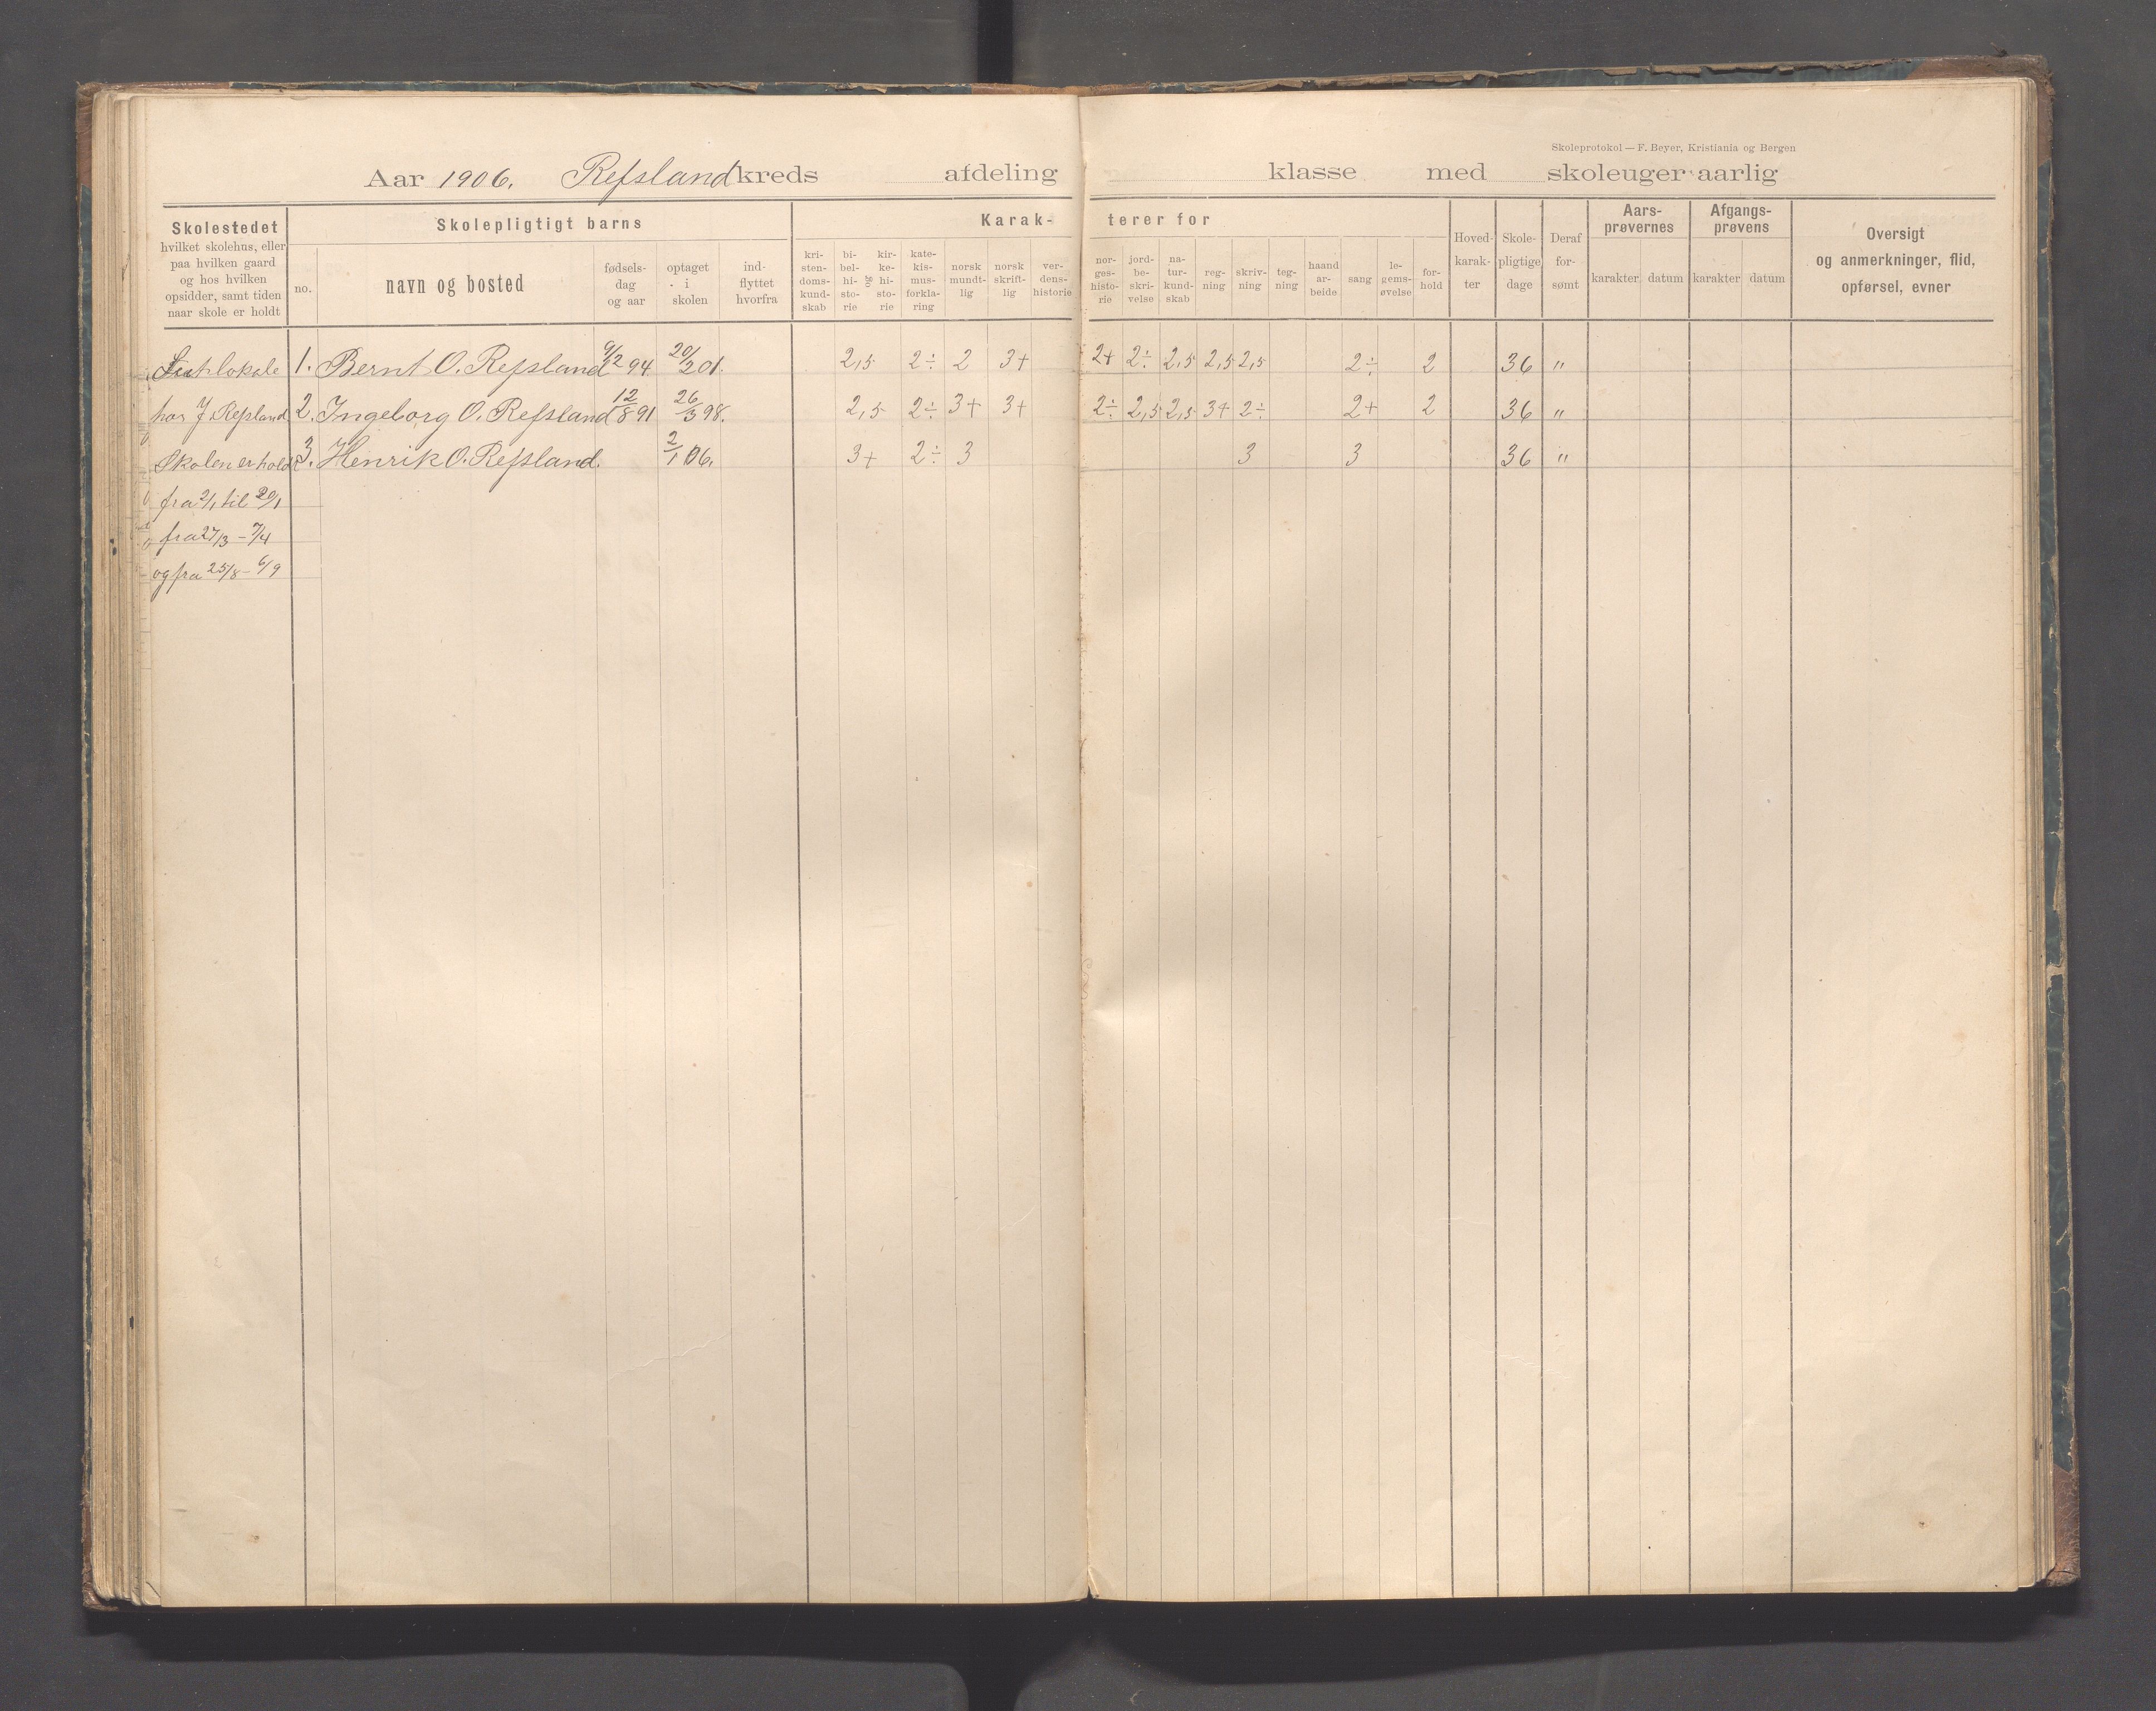 Skoleprotokol — F. Beyer, Kristiania og Bergen
Aar 1906. Refsland kreds afdeling klasse med skoleuger aarlig
Skolestedet
hvilket skolehus, eller
paa hvilken gaard
og hos hvilken
opsidder, samt tiden
naar skole er holdt
Skolepligtigt barns
no.
navn og bosted
fødsels-
dag
og aar
optaget
i
skolen
ind-
flyttet
hvorfra
Karak-
terer for
kri-
sten-
doms-
kund-
skab
bi-
bel-
hi-
sto-
rie
og
kir-
ke-
hi-
sto-
rie
kate-
kis-
mus-
forkla-
ring
norsk
mundt-
lig
norsk
skrift-
lig
ver-
dens-
historie
nor-
ges-
histo-
rie
jord-
be-
skri-
velse
na-
tur-
kund-
skab
reg-
ning
skriv-
ning
teg-
ning
haand
ar-
beide
sang
le-
gems-
øvelse
for-
hold
Hoved-
karak-
ter
Skole-
pligtige
dage
Deraf
for-
sømt
Aars-
prøvernes
karakter datum
Afgangs-
prøvens
karakter datum
Oversigt
og anmerkninger, flid,
opførsel, evner
lokale 1. Bernt O. Refsland 9/12 94 20/2 01. 2,5 2÷ 2 3+ 2+ 2÷ 2,5 2,5 2,5 2÷ 2 36 "
hos J. Refsland 2. Ingeborg O. Refsland 12/8 91 26/3 98. 2,5 2÷ 3+ 3+ 2÷ 2,5 2,5 3+ 2÷ 2+ 2 36 "
Skolen er holdt 3. Henrik O. Refsland. 2/1 06. 3+ 2÷ 3 3 3 36 "
fra 2/1 til 20/1
fra 27/3 – 7/4
og fra 25/8 – 6/9